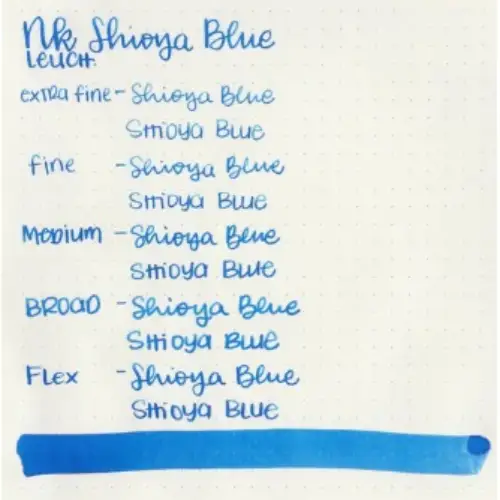 Nk Shioya Blue
Leuch.
extra fine - Shioya Blue
Shioya Blue
fine - Shioya Blue
Shioya Blue
Medium - Shioya Blue
Shioya Blue
BROAD - Shioya Blue
Shioya Blue
FLEX - Shioya Blue
Shioya Blue